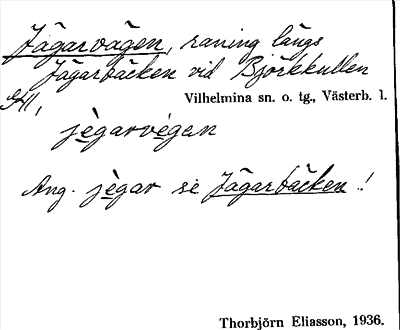 Jägarvägen, raning längs
Jägarbäcken vid Björkkullen
Vilhelmina sn. o. tg., Västerb. l.
jègarvégen
Ang. jègar se Jägarbäcken!
Thorbjörn Eliasson, 1936.